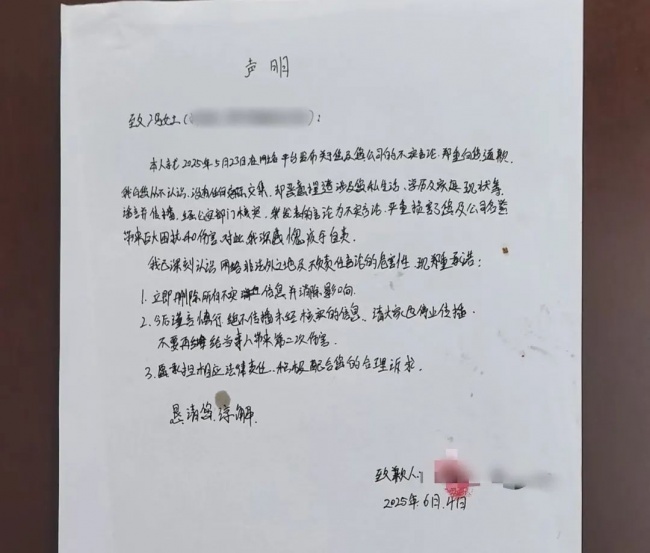 声明
致冯女士( ):
本人就于2025年5月23日在网络平台发布关于您及您公司的不实言论,郑重向您道歉。
我与您从不认识,没有任何交集,却 涉及您私生活、学历及家庭现状等
谣言并传播,经 部门核实,我发表的言论为不实言论,严重损害了您及公司名誉
带来巨大困扰和伤害,对此我深感愧疚与自责
我已深刻认识网络非法外之地及不负责任言论的危害性,现郑重承诺:
1.立即删除所有不实信息并消除影响
2.今后谨言慎行绝不传播未经核实的信息、请大家也停止传播
不要再给当事人带来第二次伤害
3.愿承担相应法律责任,积极配合您的合理诉求。
恳请您谅解
致歉人:
2025年6月4日